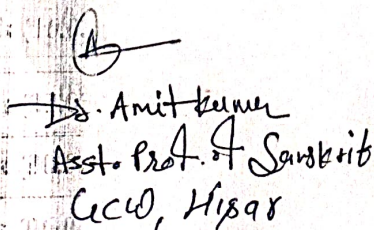 A
Dr. Amit kumar
Asst. Prof. of Sanskrit
GCW, Hisar